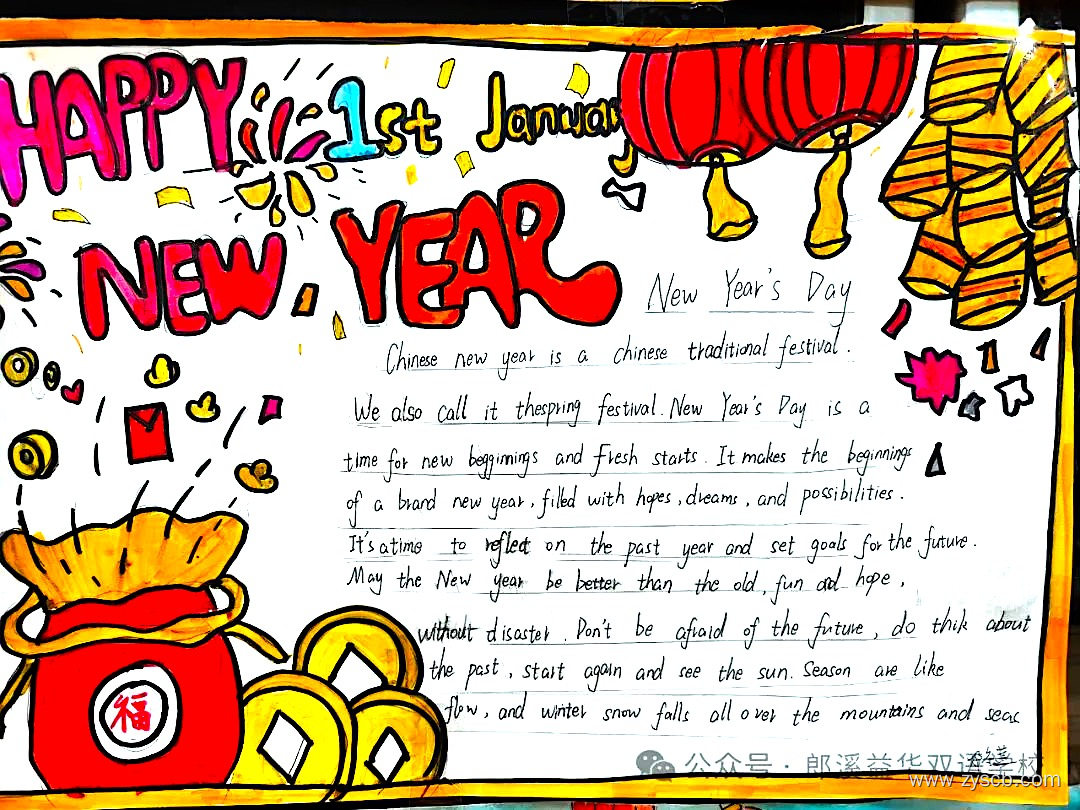 HAPPY 1st January
NEW YEAR
New Year's Day
Chinese new year is a chinese traditional festival.
We also call it thespring festival. New Year's Day is a
time for new begginnings and Fresh starts. It makes the beginnings
of a brand new year, filled with hopes, dreams, and possibilities.
It's a time to reflect on the past year and set goals for the future.
May the New year be better than the old, fun and hope,
without disaster. Don't be afraid of the future, do thik about
the past, start again and see the sun. Season are like
flow, and winter snow falls all over the mountains and seas
福
公众号·郎溪益华双语学校
www.zyscb.com